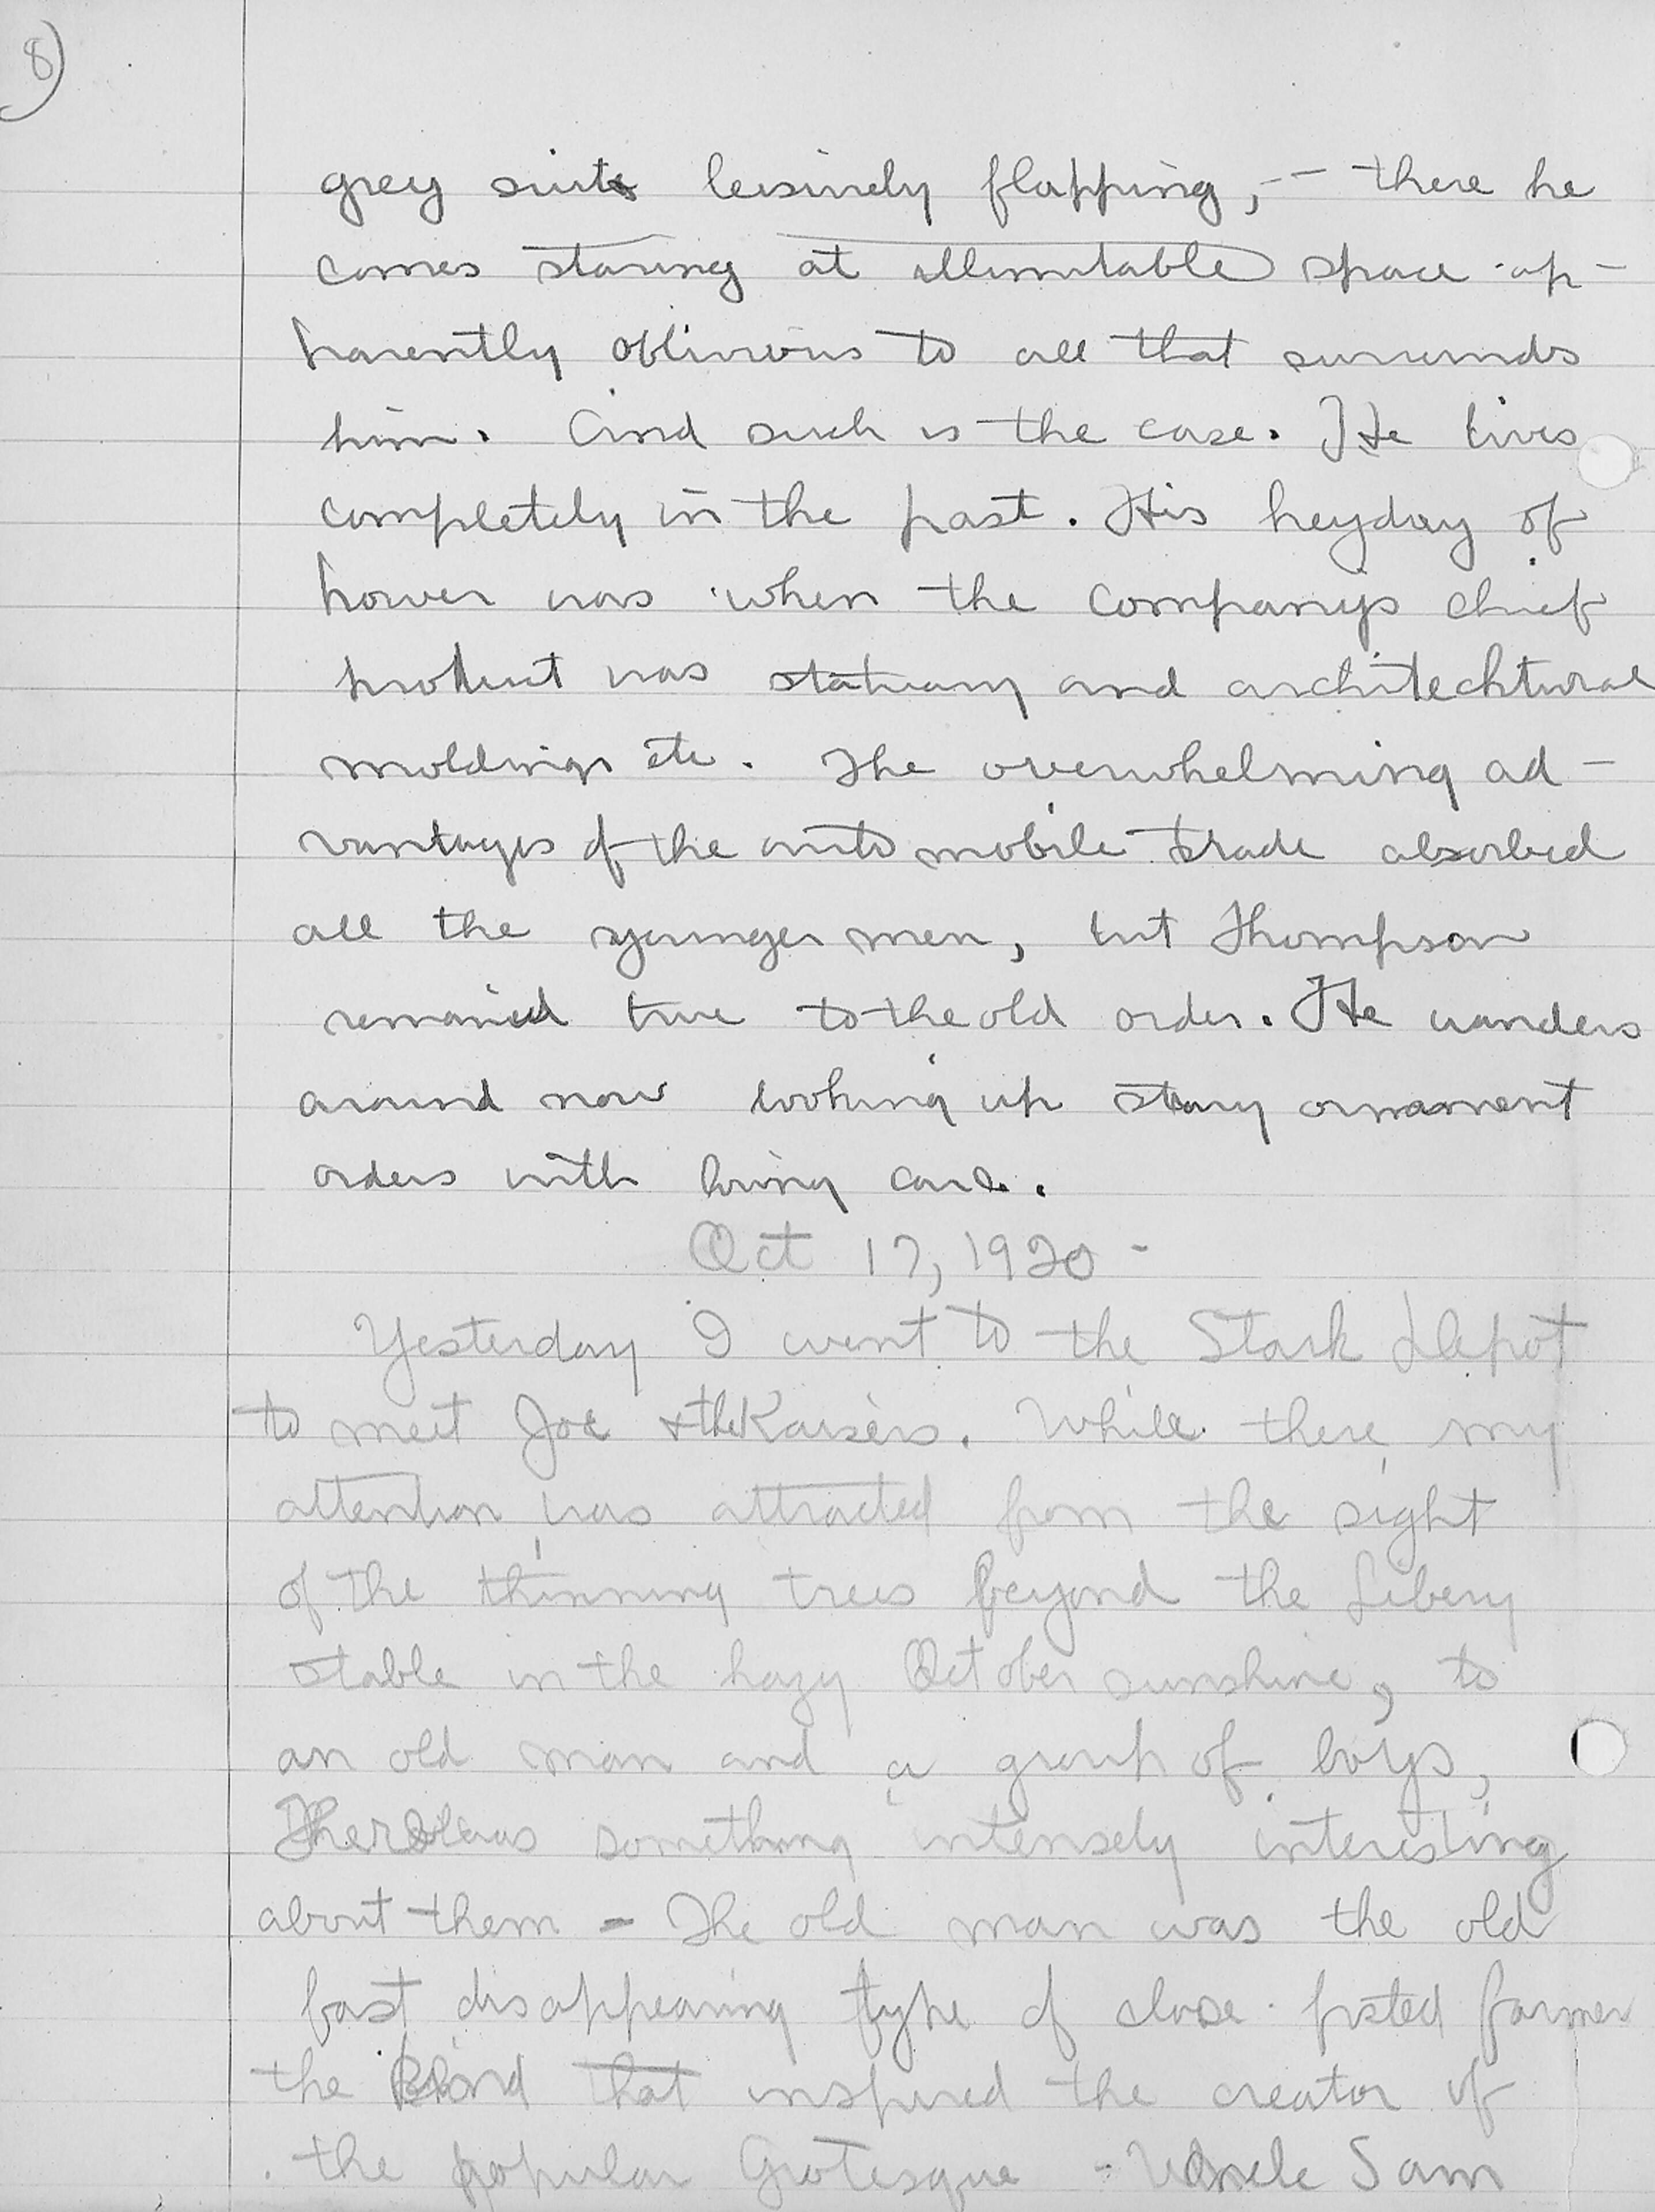 8)
grey suits leisurely flapping, -- there he
comes staring at illimitable space ap-
parently oblivious to all that surrounds
him. And such is the case. He lives
completely in the past. His heyday of
power was when the company's chief
product was statuary and architecktural
moldings etc. The overwhelming ad-
vantages of the automobile trade absorbed
all the younger men, but Thompson
remained true to the old order. He wanders
around now looking up stray ornament
orders with loving care.
Oct 17, 1920 -
Yesterday I went to the Stark Depot
to meet Joe & the Kaisers. While there my
attention was attracted from the sight
of the thinning trees beyond the Libery
stable in the hazy October sunshine, to
an old man and a group of boys,
There was something intensely interesting
about them - The old man was the old
fast disappearing type of close-fisted farmer
the kind that inspired the creator of
the popular Grotesque - Uncle Sam